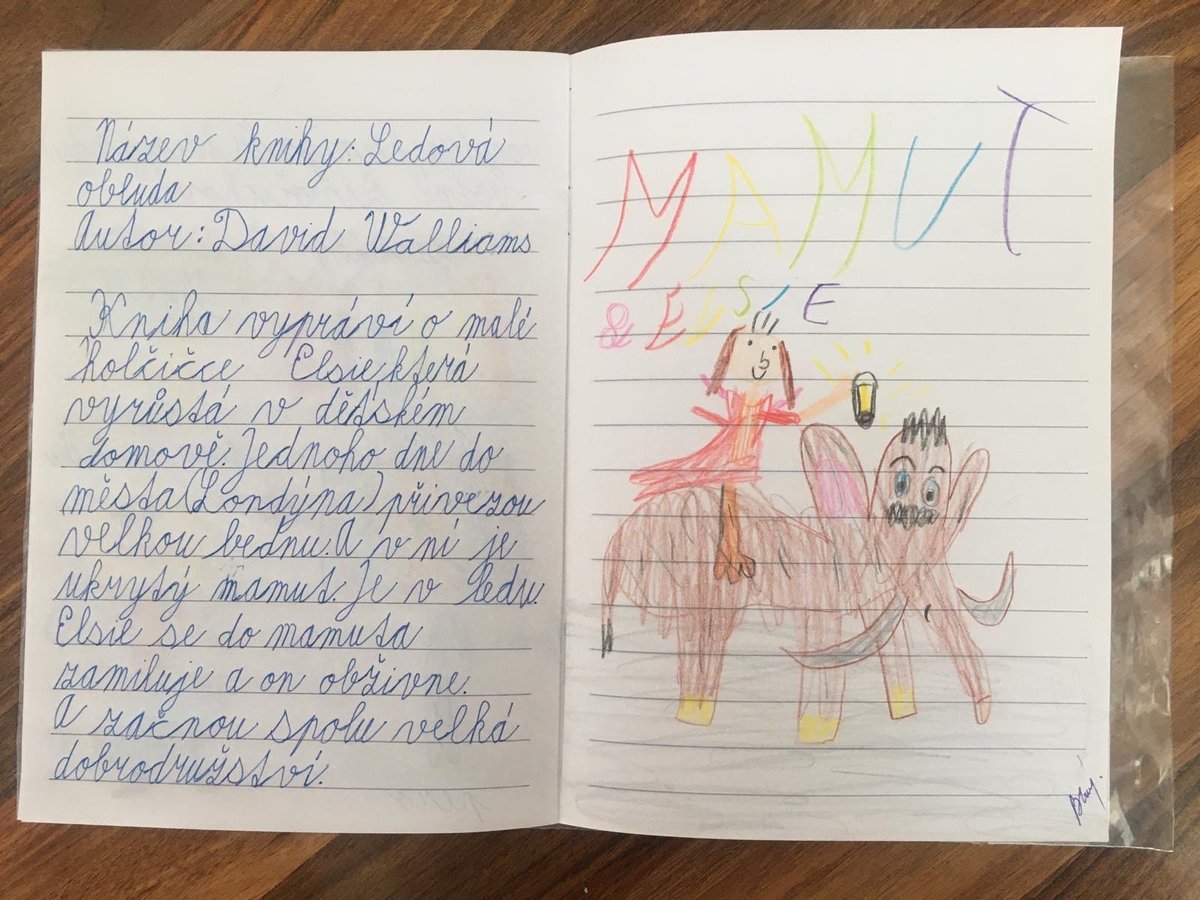 Název knihy: Ledová
obluda
Autor: David Walliams
Kniha vypráví o malé
holčičce Elsie, která
vyrůstá v dětském
domově. Jednoho dne do
města (Londýna) přivezou
velkou bednu. A v ní je
ukrytý mamut. Je v ledu.
Elsie se do mamuta
zamiluje a on obživne.
A začnou spolu velká
dobrodružství.
MAMUT
& ELSIE